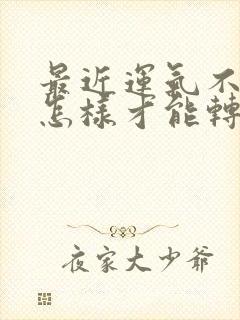 最近運氣不
怎樣才能轉
夜家大少爺